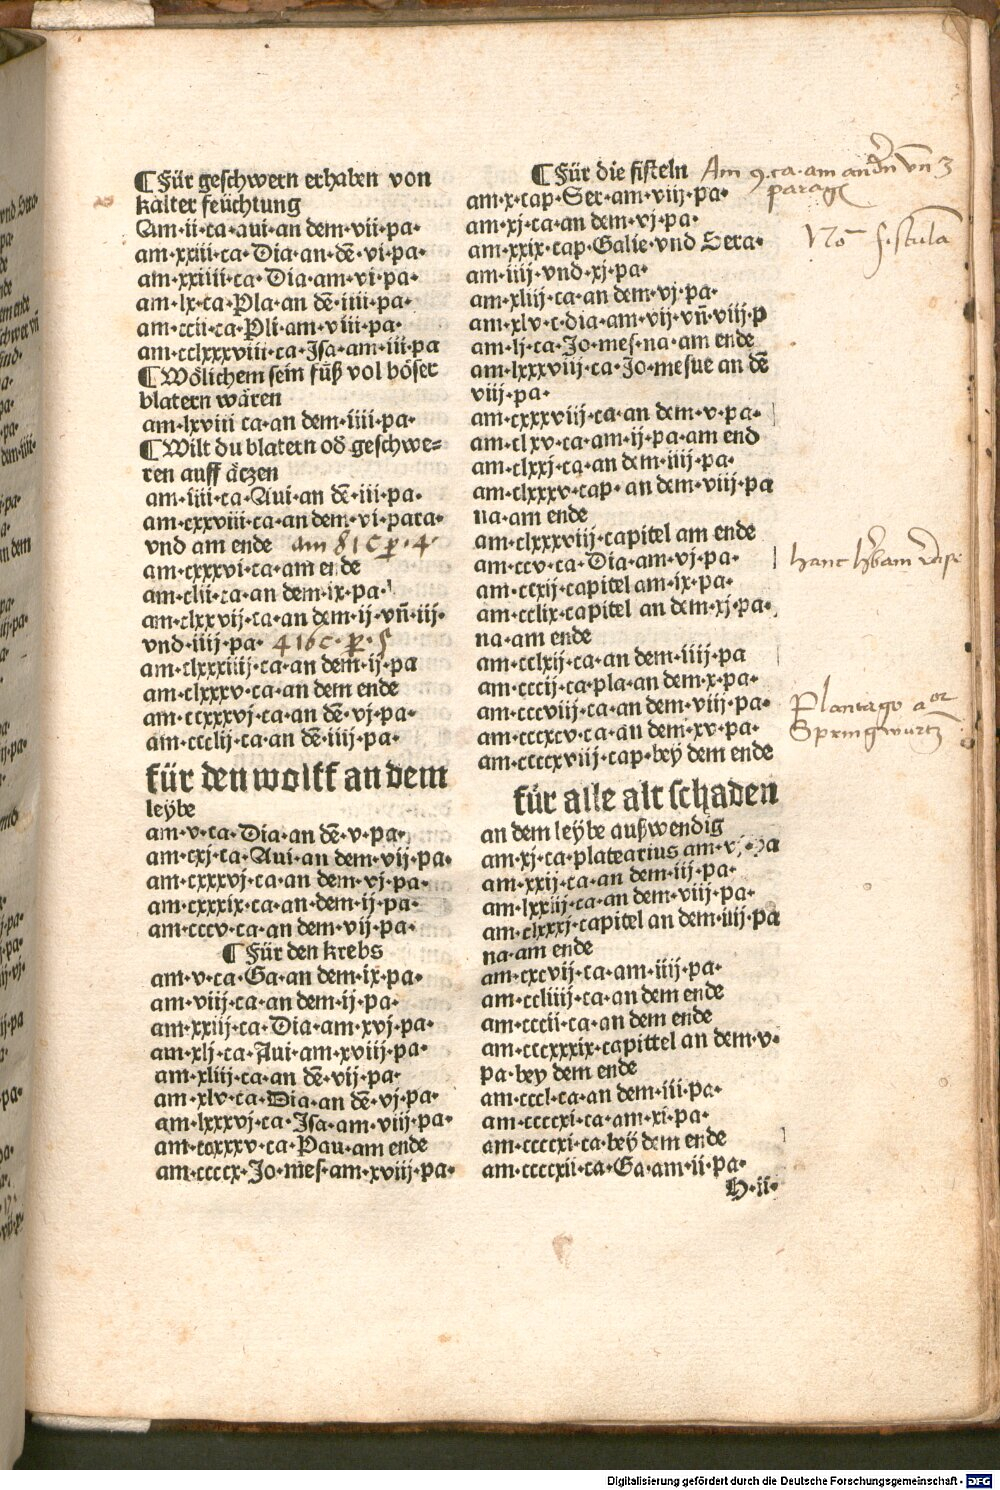 ¶ Für geschwern erhaben von
kalter feüchtung
Am·ii·ca·aui·an dem·vii·pa·
am·xxiii·ca·Dia·an·dē·vi·pa·
am·xxiiii·ca·Dia·am·vi·pa·
am·lx·ca·Pla·an dē·iiii·pa·
am·ccii·ca·Pli·am·viii·pa·
am·cclxxxviii·ca·Isa·am·iii·pa
¶ Wölichem sein füß vol böser
blatern wären
am·lxviii ca·an dem·iiii·pa·
¶ Wilt du blatern od̄ geschwe=
ren auff äczen
am·iiii·ca·Aui·an dē·iii·pa·
am·cxxviii·ca·an dem·vi·para·
vnd am ende
am·cxxxvi·ca·am ende
am·clii·ca·an dem·ix·pa·
am·clxxvij·ca·an dem·ij·vn̄·iij·
vnd·iiij·pa·
am·clxxxiiij·ca·an dem·ij·pa
am·clxxxv·ca·an dem ende
am·ccxxxvj·ca·an dē·vj·pa·
am·ccclij·ca·an dē·iiij·pa·
für den wolff an dem
leÿbe
am·v·ca·Dia·an dē·v·pa·
am·cxj·ca·Aui·an dem·vij·pa·
am·cxxxvj·ca·an dem·vj·pa·
am·cxxxix·ca·an·dem·ij·pa·
am·cccv·ca·an dem·vij·pa·
¶ Für den krebs
am·v·ca·Ga·an dem·ix·pa·
am·viij·ca·an dem·ij·pa·
am·xxiij·ca·Dia·am·xvj·pa·
am·xlj·ca·Aui·am·xviij·pa·
am·xliij·ca·an dē·vij·pa·
am·xlv·ca·Dia·an dē·vj·pa·
am·lxxxvj·ca·Isa·am·viij·pa·
am·ccxxxv·ca·Pau·am ende
am·ccccx·Jo·mes·am·xviij·pa·
¶ Für die fisteln Am 9·ca·am
am·x·cap·Ser·am·viij·pa·
am·xj·ca·an dem·vj·pa·
am·xxix·cap·Galie·vnd Sera·
am·iiij·vnd·xj·pa·
am·xliij·ca·an dem·vj·pa·
am·xlv·c·dia·am·vij·vn̄·viij·p
am·lj·ca·Jo·mes·na·am ende
am·lxxxvij·ca·Jo·mesue an dē
viij·pa·
am·cxxxviij·ca·an dem·v·pa·
am·clxv·ca·am·ij·pa·am end
am·clxxj·ca·an dem·iiij·pa·
am·clxxxv·cap·an dem·viij·pa
na·am ende
am·clxxxviij·capitel am ende
am·ccv·ca·Dia·am·vj·pa·
am·ccxij·capitel am·ix·pa·
am·cclix·capitel an dem·xj·pa·
na·am ende
am·cclxij·ca·an dem·iiij·pa
am·cccij·ca·pla·an dem·x·pa·
am·cccviij·ca·an dem·viij·pa·
am·cccxcv·ca·an dem·xv·pa·
am·ccccxviij·cap·bey dem ende
für alle alt schaden
an dem leÿbe außwendig
am·xj·ca·platearius am·vj·pa
am·xxij·ca·an dem·iij·pa·
am·lxxiij·ca·an dem·viij·pa·
am·clxxxj·capitel an dem·iiij·pa
na·am ende
am·cxcvij·ca·am·iiij·pa·
am·ccliiij·ca·an dem ende
am·cccii·ca·an dem ende
am·cccxxxix·capittel an dem·v·
pa·bey dem ende
am·cccl·ca·an dem·iii·pa·
am·ccccxi·ca·am·xi·pa·
am·ccccxi·ca·beÿ dem ende
am·ccccxii·ca·Ga·am·ii·pa·
H·ii·
fistula
hanc
Plantago
Springwurtz
Digitalisierung gefördert durch die Deutsche Forschungsgemeinschaft - DFG